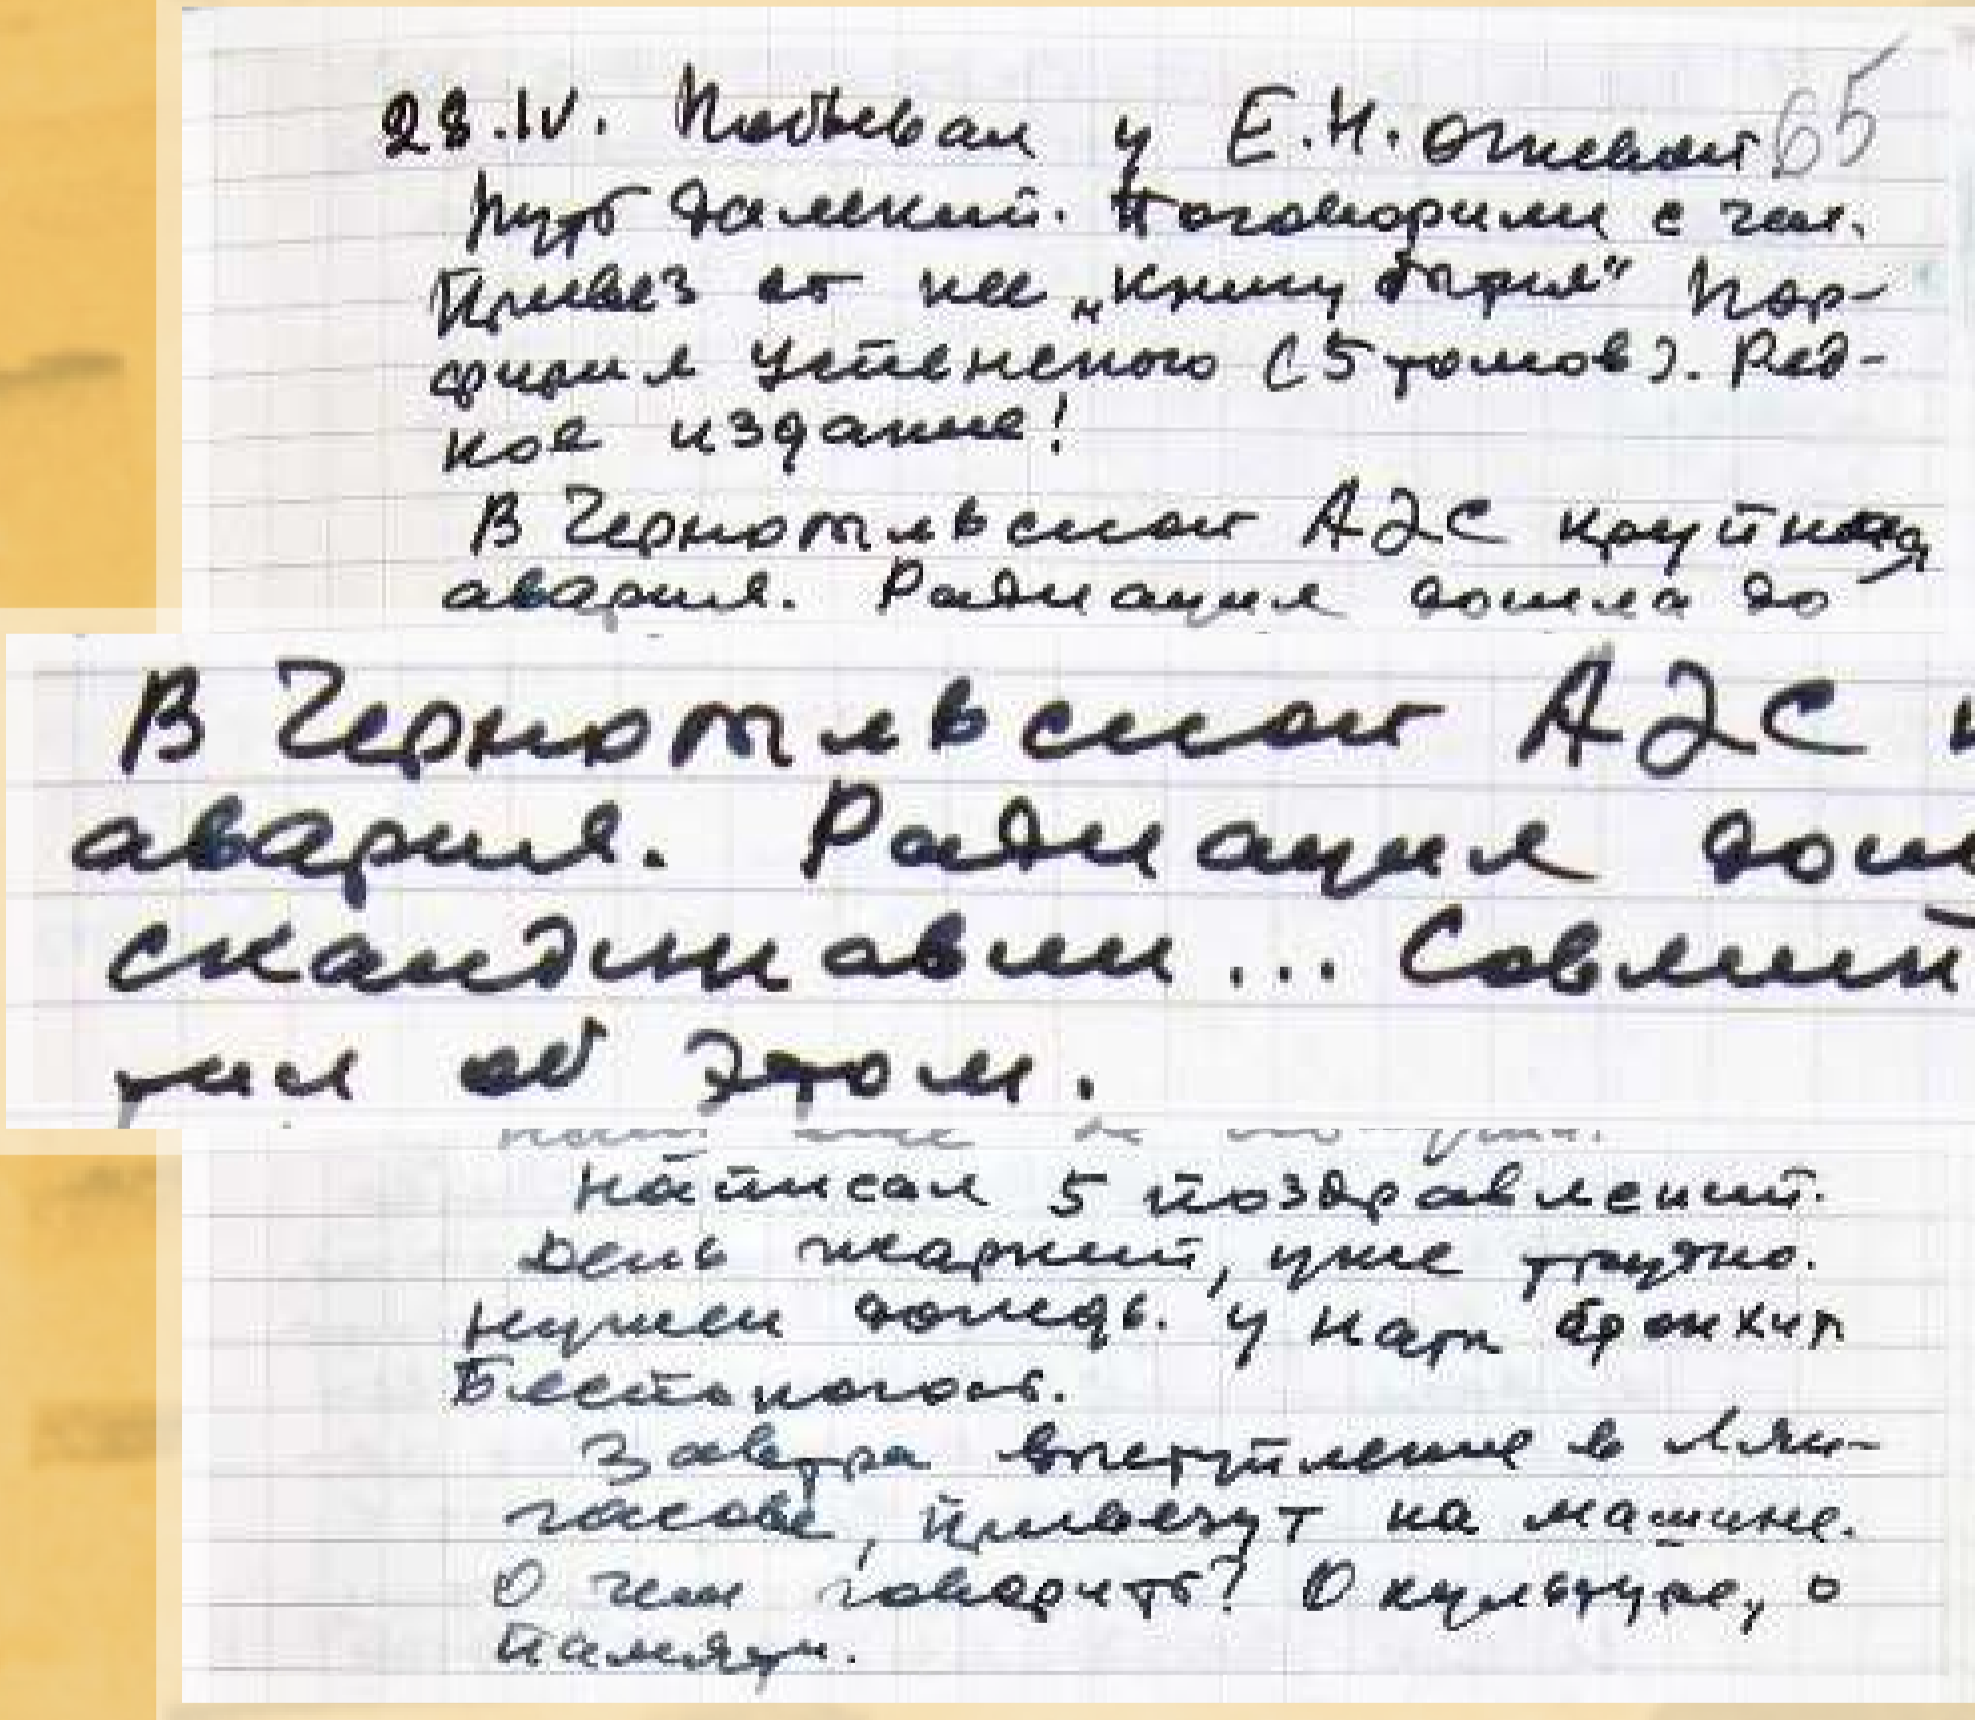 28.IV. Побывал у Е.Н. Огневой 65
Путь далекий. Поговорили с час.
Привез от нее „Книгу бытия" Пор-
фирия Успенского (5 томов). Ред-
кое издание!
В Чернобыльской АЭС крупная
авария. Радиация дошла до
В Чернобыльской АЭС
авария. Радиация
скандинавии... Совмин
тил об этом.
Написал 5 поздравлений.
День жаркий, уже трудно.
Нужен дождь. У Нат бронхит
Беспокоюсь.
Завтра выступление в
привезут на машине.
О чем говорить? О культуре, о
памяти.